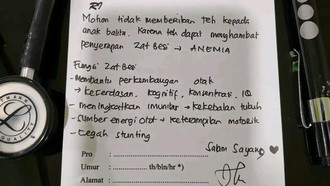 R/
Mohon tidak memberikan teh kepada
anak balita. Karena teh dapat menghambat
penyerapan Zat Besi → ANEMIA
Fungsi Zat Besi
- Membantu perkembangan otak
→ kecerdasan, kognitif, konsentrasi, IQ
- meningkatkan imunitas → kekebalan tubuh
- Sumber energi otot → keterampilan motorik
- Cegah stunting
Salam Sayang
Pro : ..............................
Umur : .................... th/bln/hr *)
Alamat : ..............................